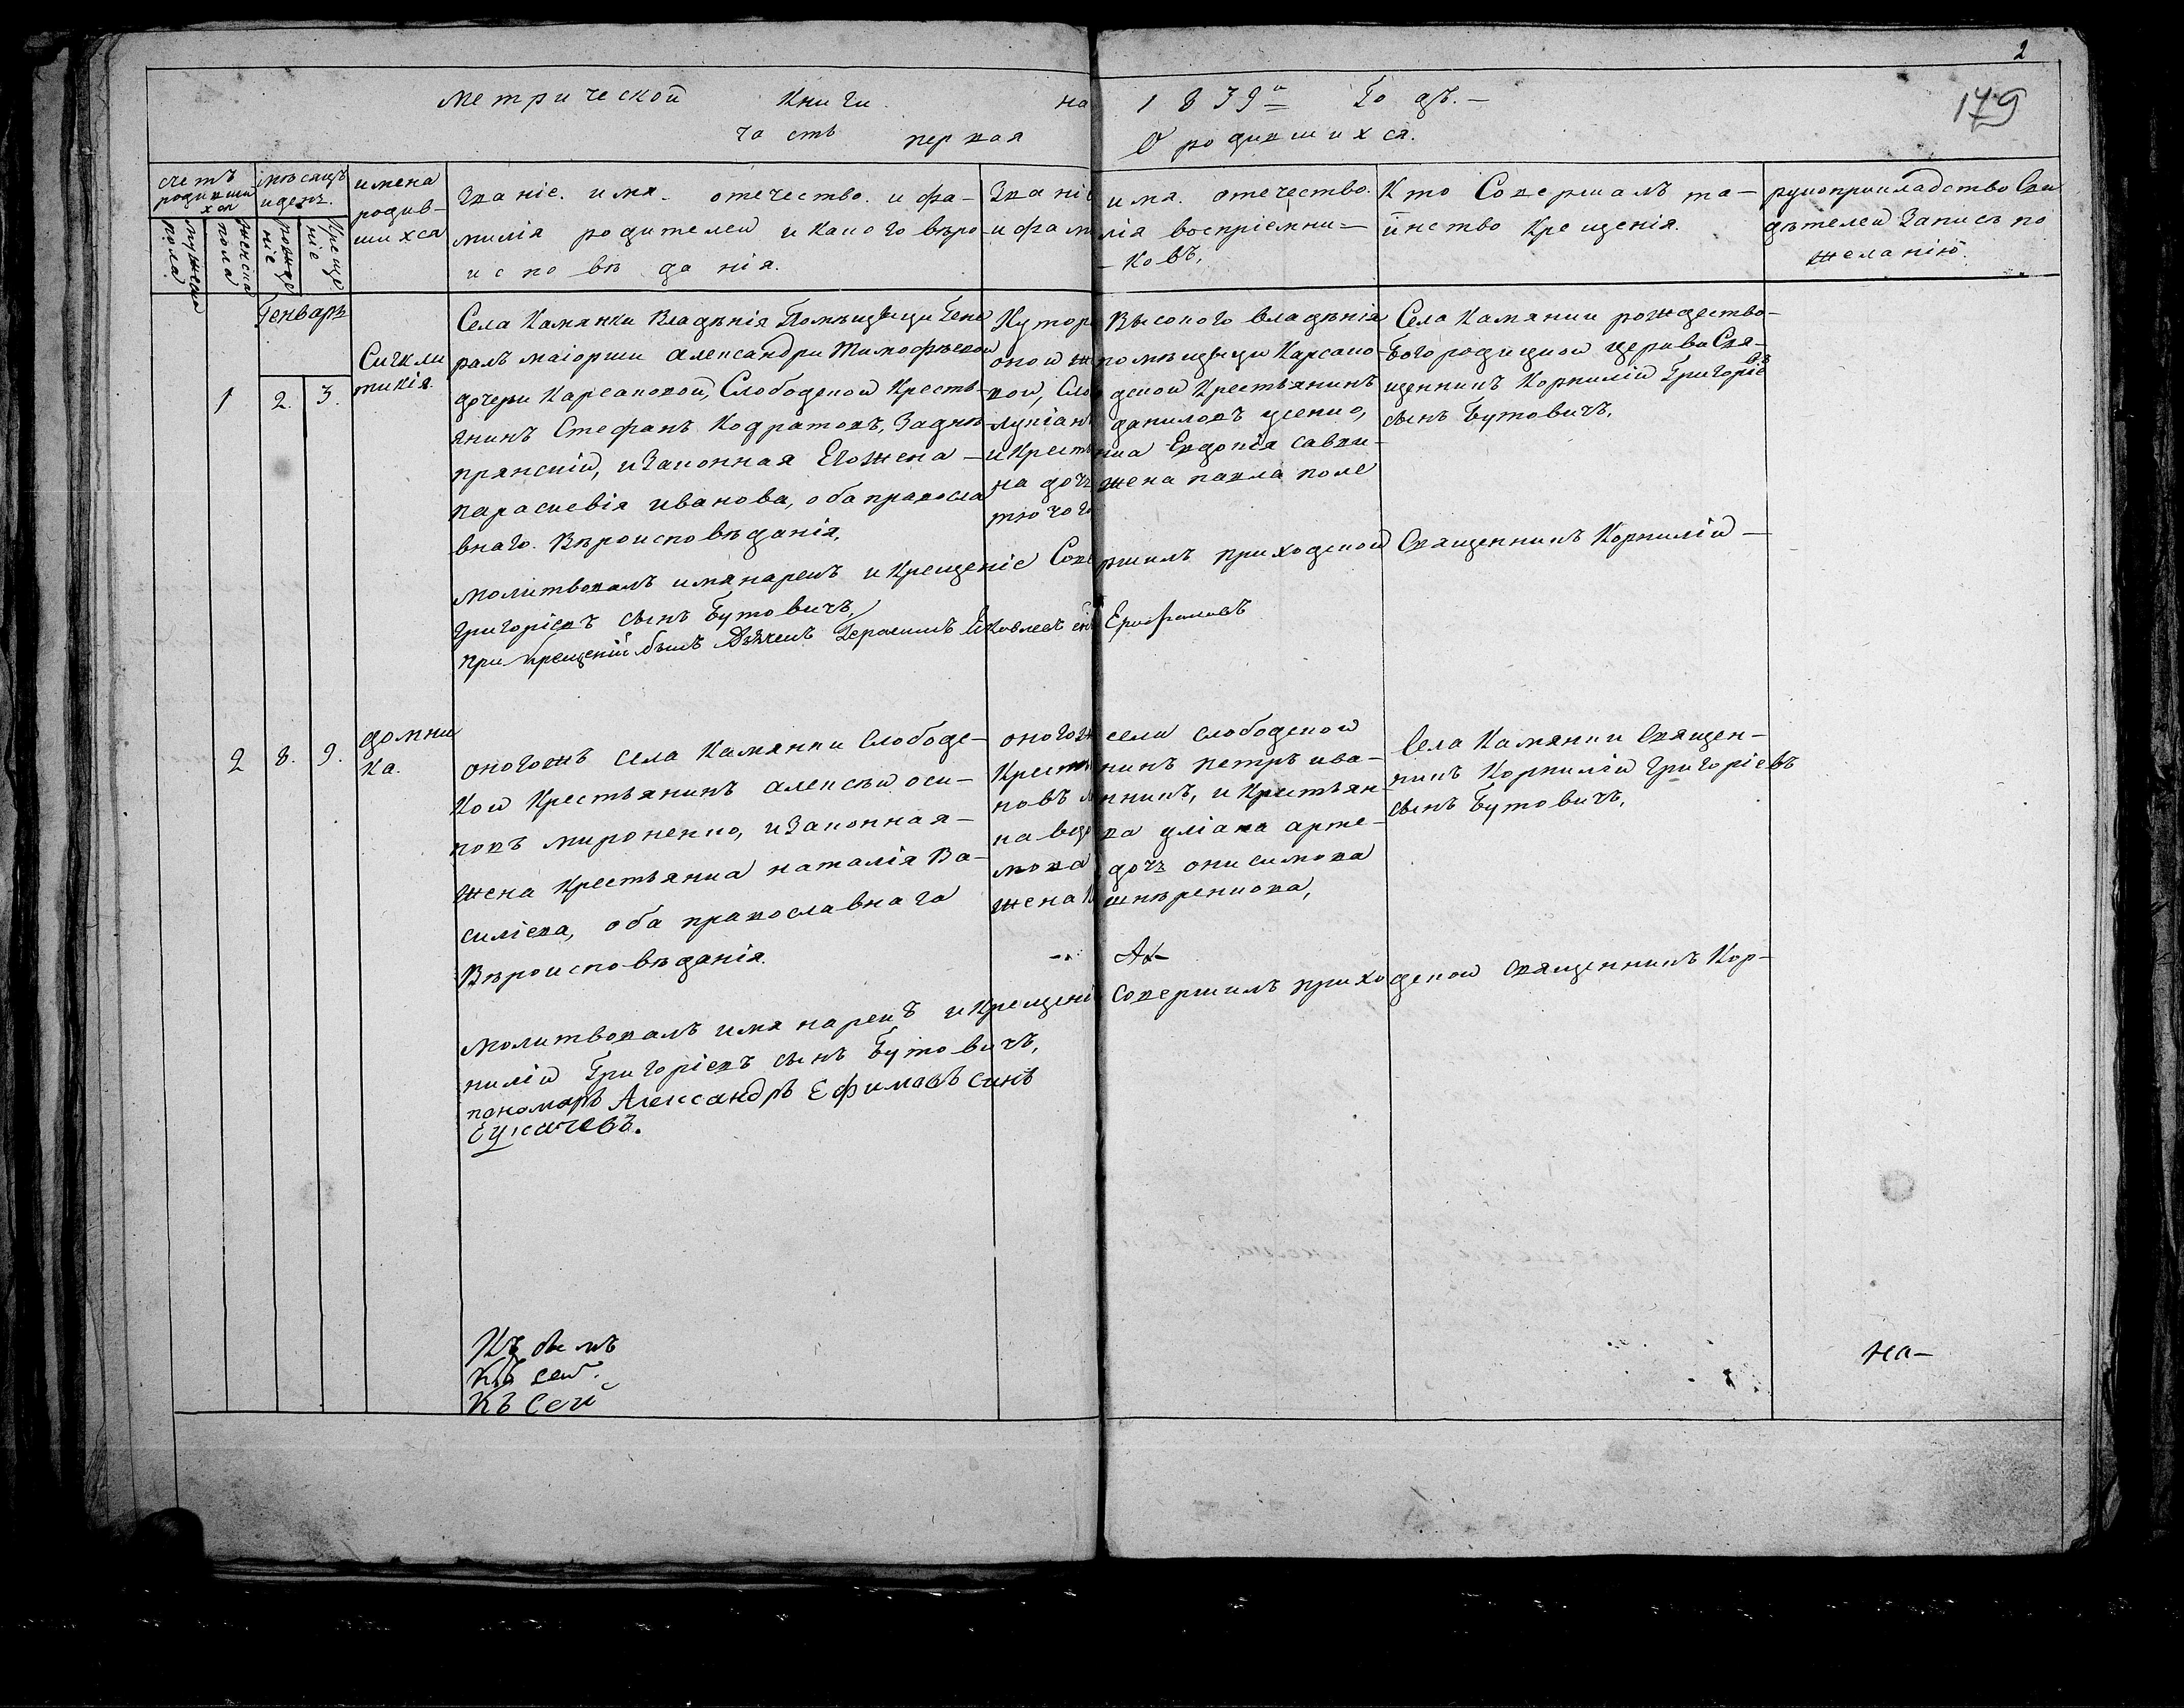 2
179
Метрической Книги на 1839й Годъ.
часть первая О родившихся.
счетъ родившихся
мужеска пола
женска пола
мѣсяцъ и день.
рожденіе
крещеніе
имена родившихся
Званіе. имя. отечество. и фа-
милія родителей и какого вѣро
исповѣданія.
Званіе имя. отечество.
и фамилія воспріемни-
ковъ,
Кто Совершалъ та-
инство Крещенія.
рукоприкладство Сви
дѣтелей Запись по
желанію.
Генварь
1
2.
3.
Сигкли
тикія.
Села Камянки Владѣнія Помѣщицы Гене
ралъ маіорши александры Тимофѣевой
дочери Карсаковой, Слободской Кресть-
янинъ Стефанъ Кодратовъ, Заднѣ-
прянскій, и Законная Его жена
параскевія иванова, оба правосла
внаго. Вѣроисповѣданія,
Хутора Высокого владѣнія
оной же помѣщицы Карсако-
вой, Слободской Крестьянинъ
лукіанъ даниловъ усенко,
и Крестьянка Евдокія савви-
на дочь жена павла поле
тючого
Села Камянки рождество-
Богородицкой церкви Свя-
щенникъ Корнилій Григоріевъ
сынъ Бутовичъ,
Молитвовалъ имя нарекъ и Крещеніе Совершилъ приходской Священникъ Корнилій
Григоріевъ сынъ Бутовичъ,
при крещеніи былъ Дьячекъ Герасимъ Яковлевъ сынъ
2
8.
9.
домни
ка.
оногожъ села Камянки Слободс-
кой Крестьянинъ алексѣй оси-
повъ мироненко, и Законная
жена Крестьянка наталія Ва-
силіева, оба православнаго
Вѣроисповѣданія.
оногожъ села слободской
Крестьянинъ петръ ива-
новъ
и Крестьян-
ка уліана арте-
мова дочь онисимова
жена
Села Камянки Священ-
никъ Корнилій Григоріевъ
сынъ Бутовичъ,
Молитвовалъ имя нарекъ и Крещеніе Совершилъ приходской Священникъ Кор-
нилій Григоріевъ сынъ Бутовичъ,
пономарь Александръ Ефимовъ синъ
Къ сей
Къ Сей
на-